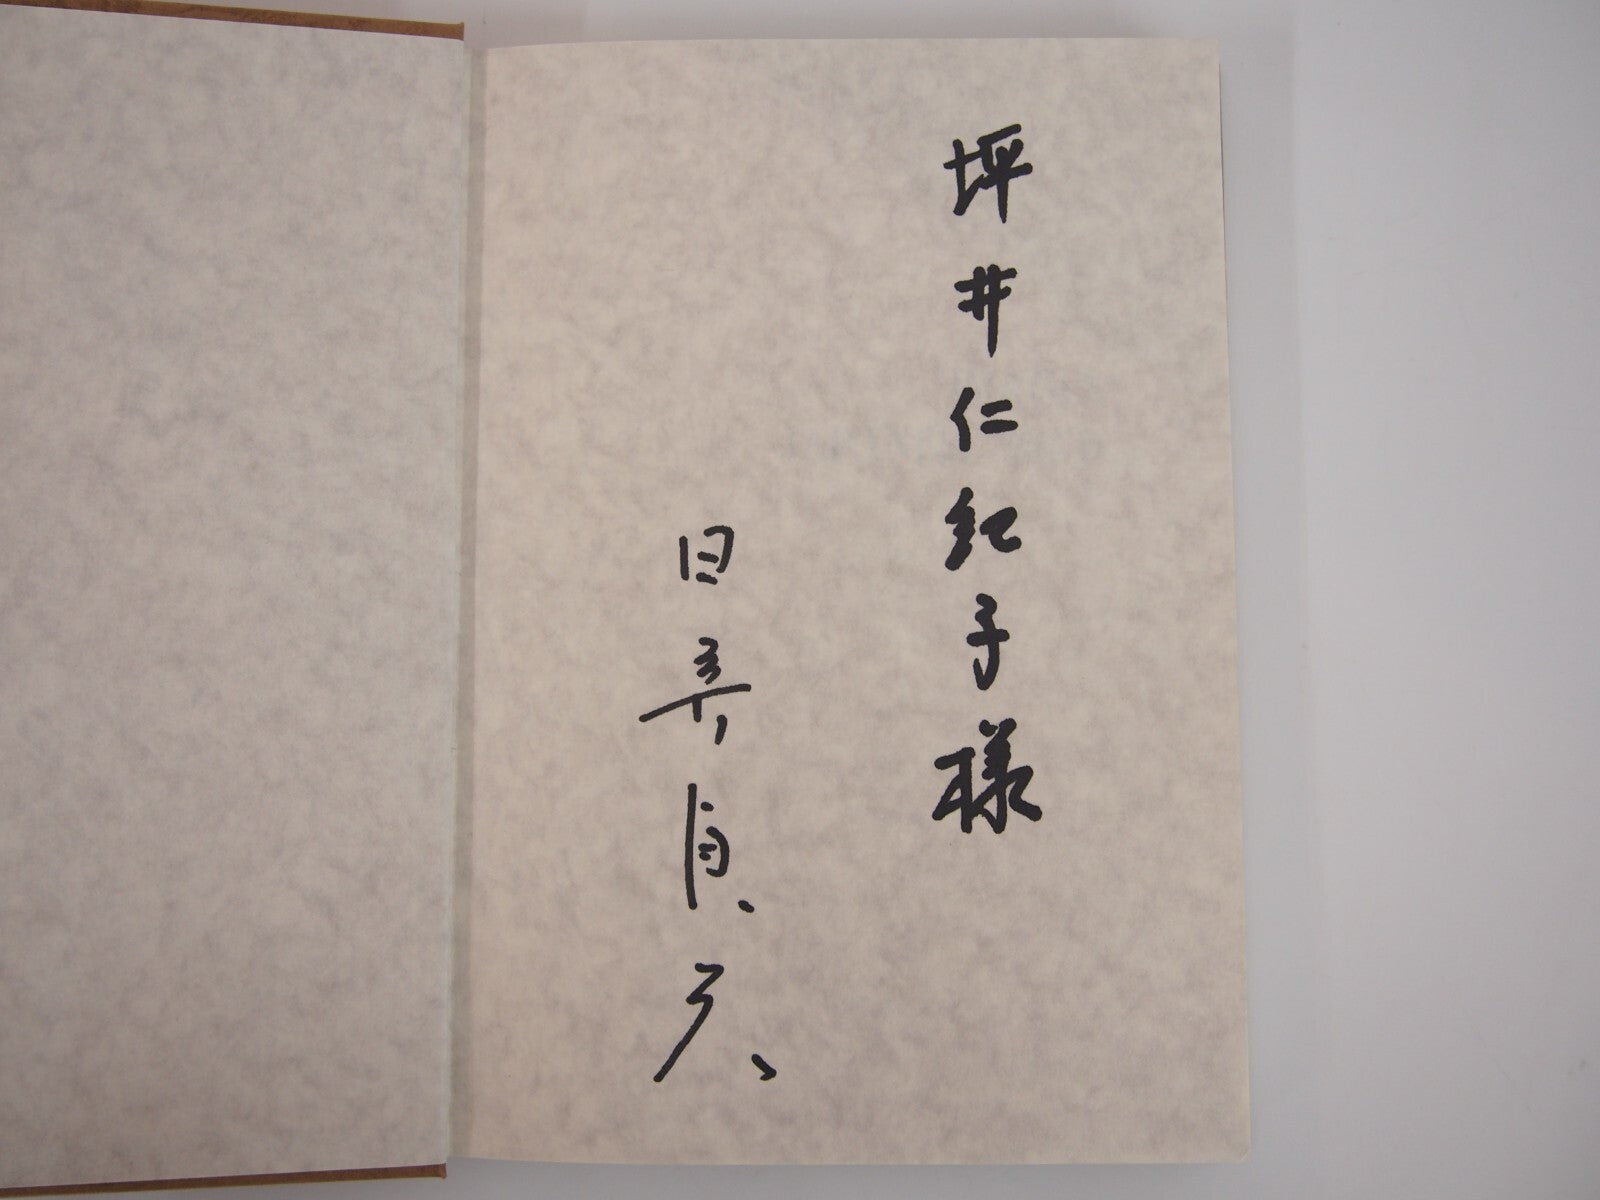 坪井仁紀子様
日竎貞夫